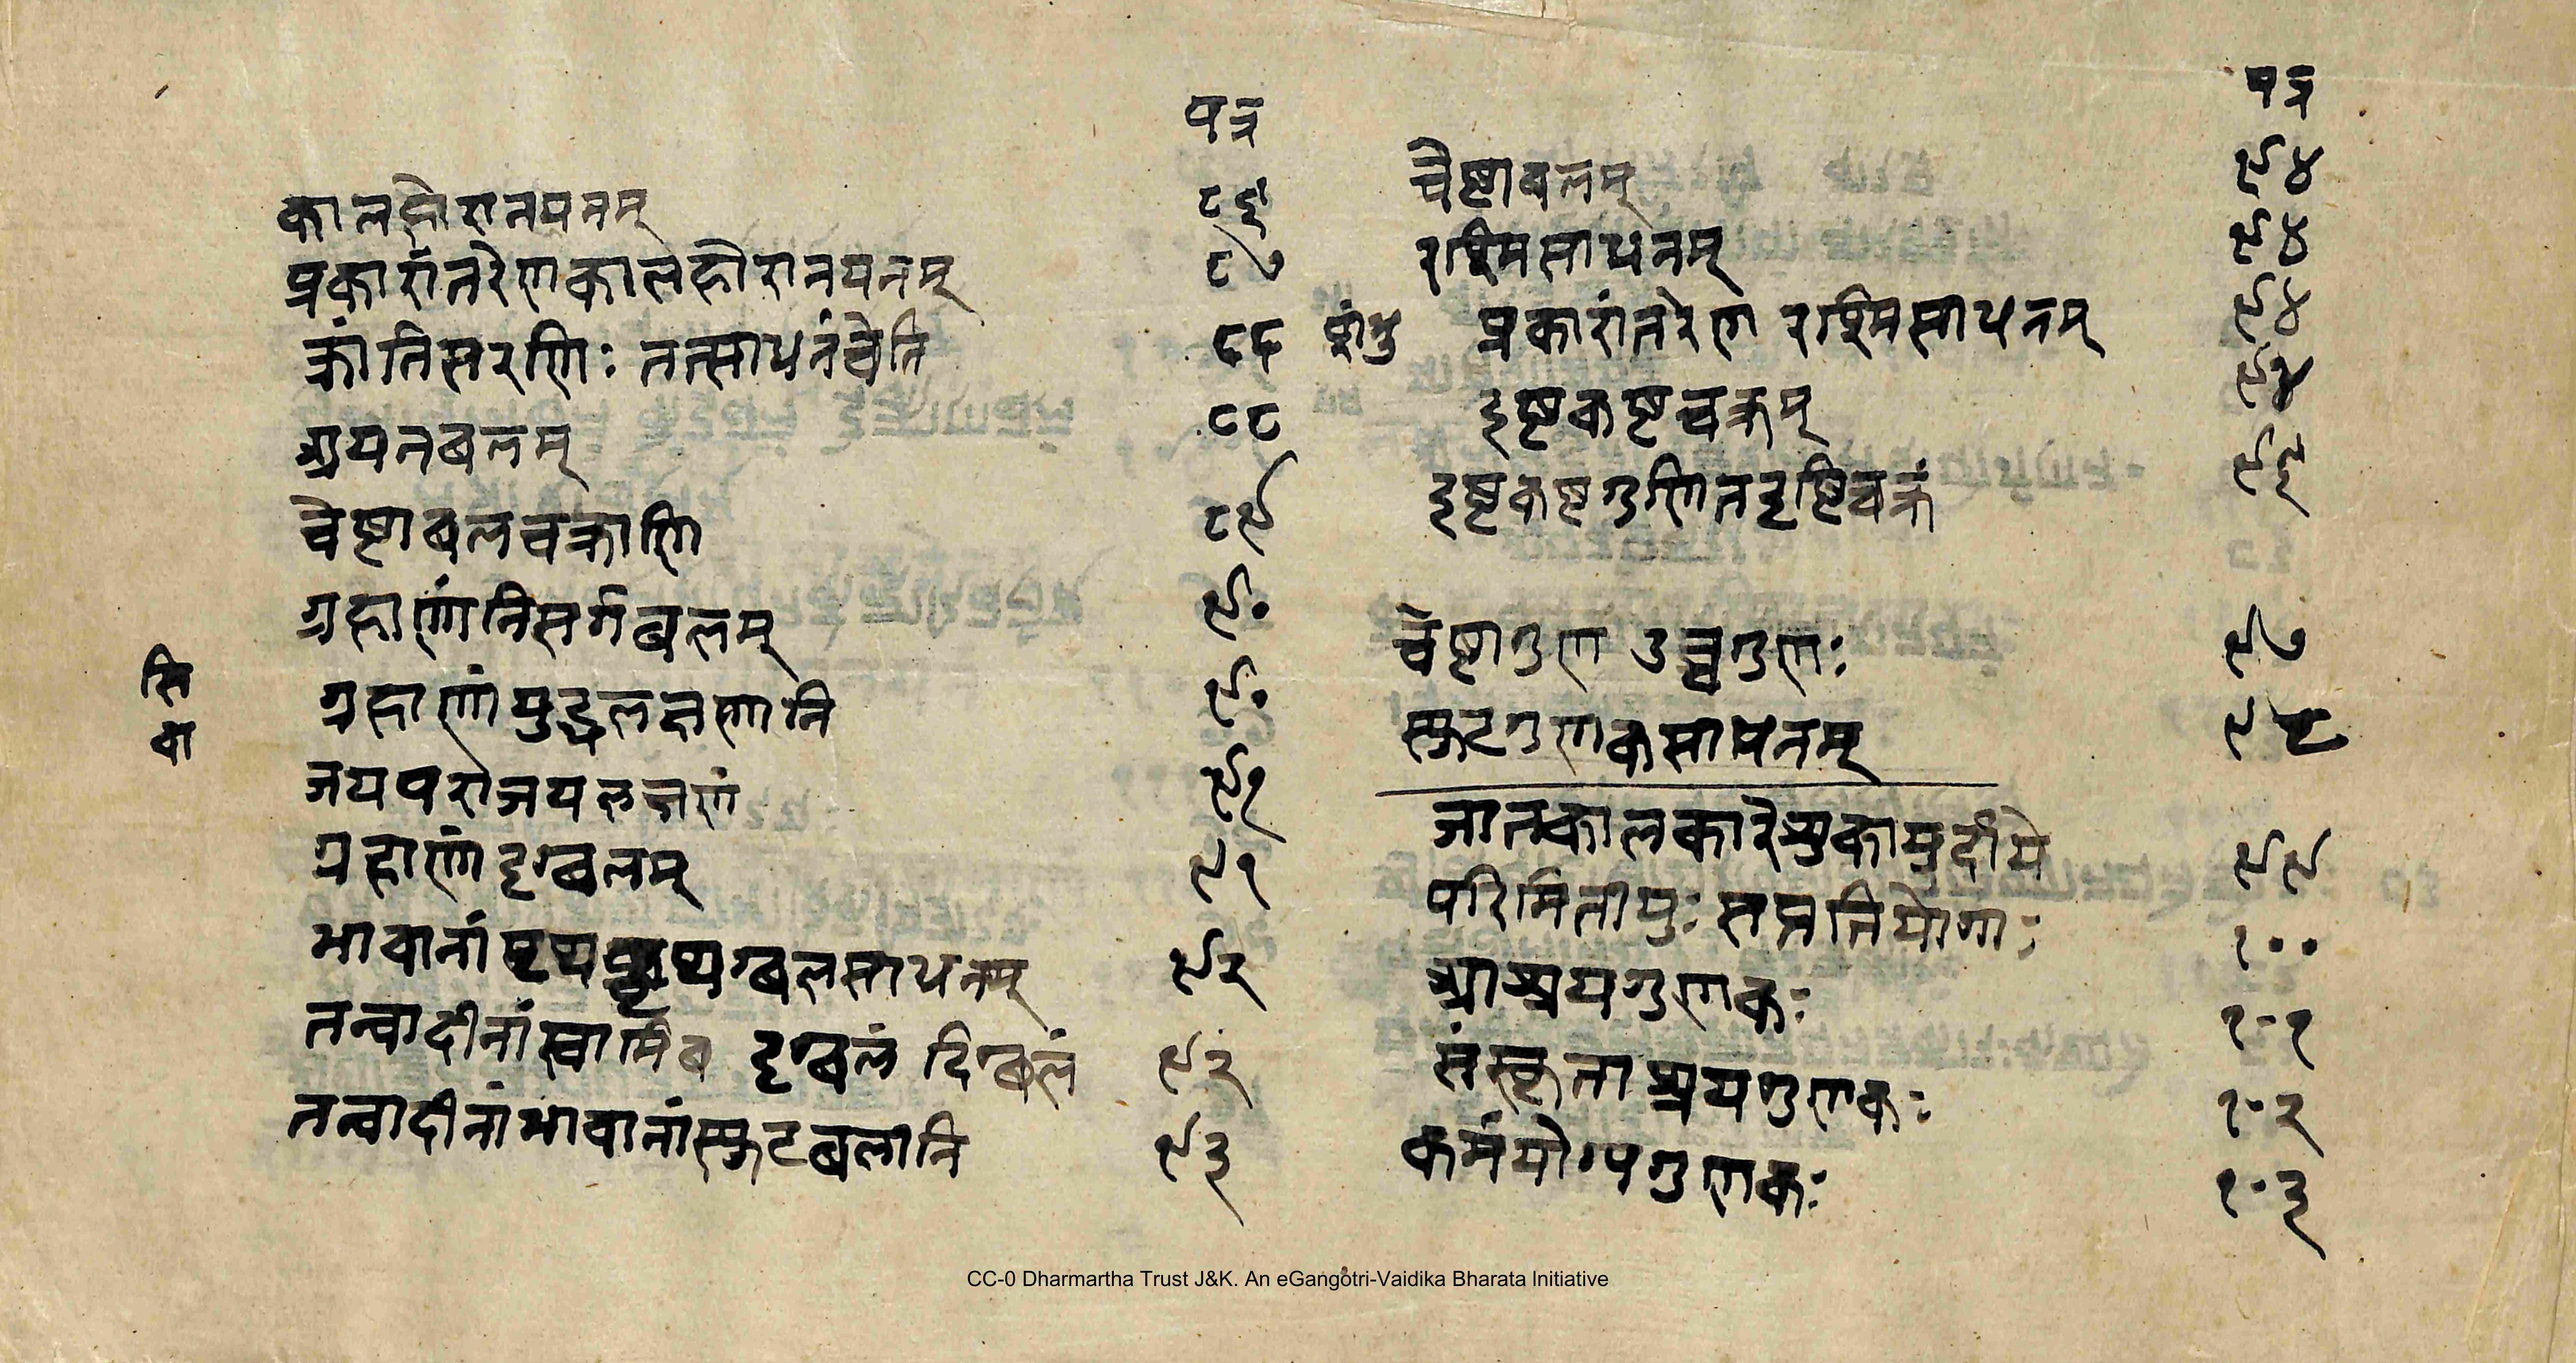 पत्र
कालहोरानयनम् ८६
प्रकारांतरेणकालहोरानयनम् ८७
क्रांतिसरणिः तत्साधनंचेति ८८
अयनबलम् ८८
चेष्टाबलचक्राणि ८९
ग्रहाणांनिसर्गबलम् ९०
ग्रहाणांयुद्धलक्षणानि ९०
जयपराजयलक्षणं ९१
ग्रहाणांदृग्बलम् ९१
भावानां पृथग्बलसाधनम् ९२
तन्वादीनांस्वामिब दृग्बलं दिग्बलं ९२
तन्वादीनांभावानांस्फुटबलानि ९३
सि
वा
पत्र
चेष्टाबलम् ९४
रश्मिसाधनम् ९४
प्रकारांतरेण रश्मिसाधनम् ९४
इष्टकष्टचक्रम् ९४
इष्टकष्टगुणितदृष्टिचक्रं ९६
चेष्टागुण उच्चगुणः ९७
स्फुटगुणकसाधनम् ९८
जातकालकारेशुकायुर्दाये ९९
परिमितायुः सप्ततियोगाः १००
आश्रयगुणकः १०१
संस्कृताश्रयगुणकः १०२
कर्मयोग्यगुणकः १०३
CC-0 Dharmartha Trust J&K. An eGangotri-Vaidika Bharata Initiative